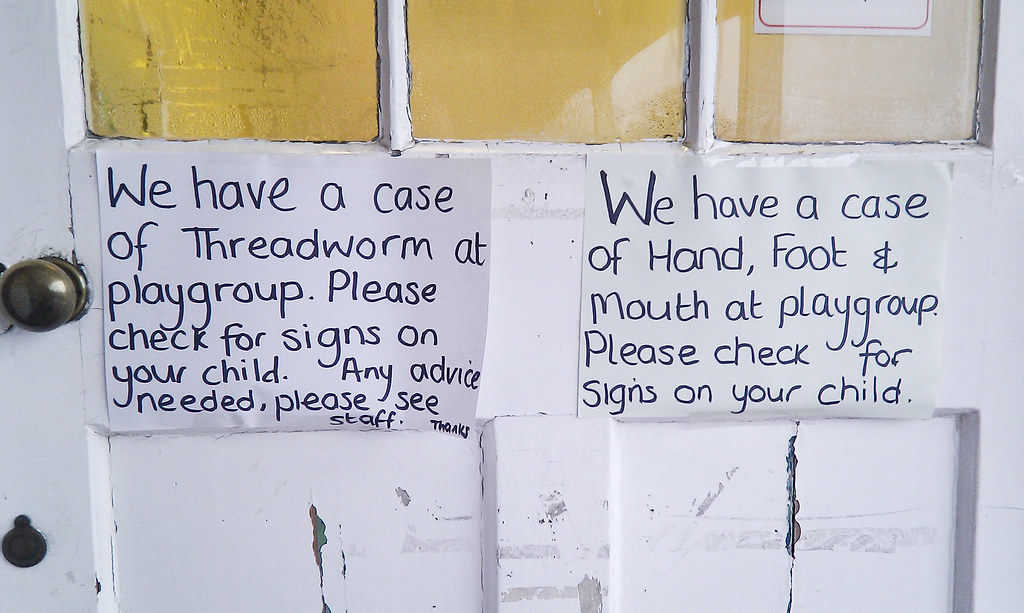 We have a case
of Threadworm at
playgroup. Please
check for signs on
your child. Any advice
needed, please see
staff. Thanks
We have a case
of Hand, Foot &
Mouth at playgroup.
Please check for
signs on your child.